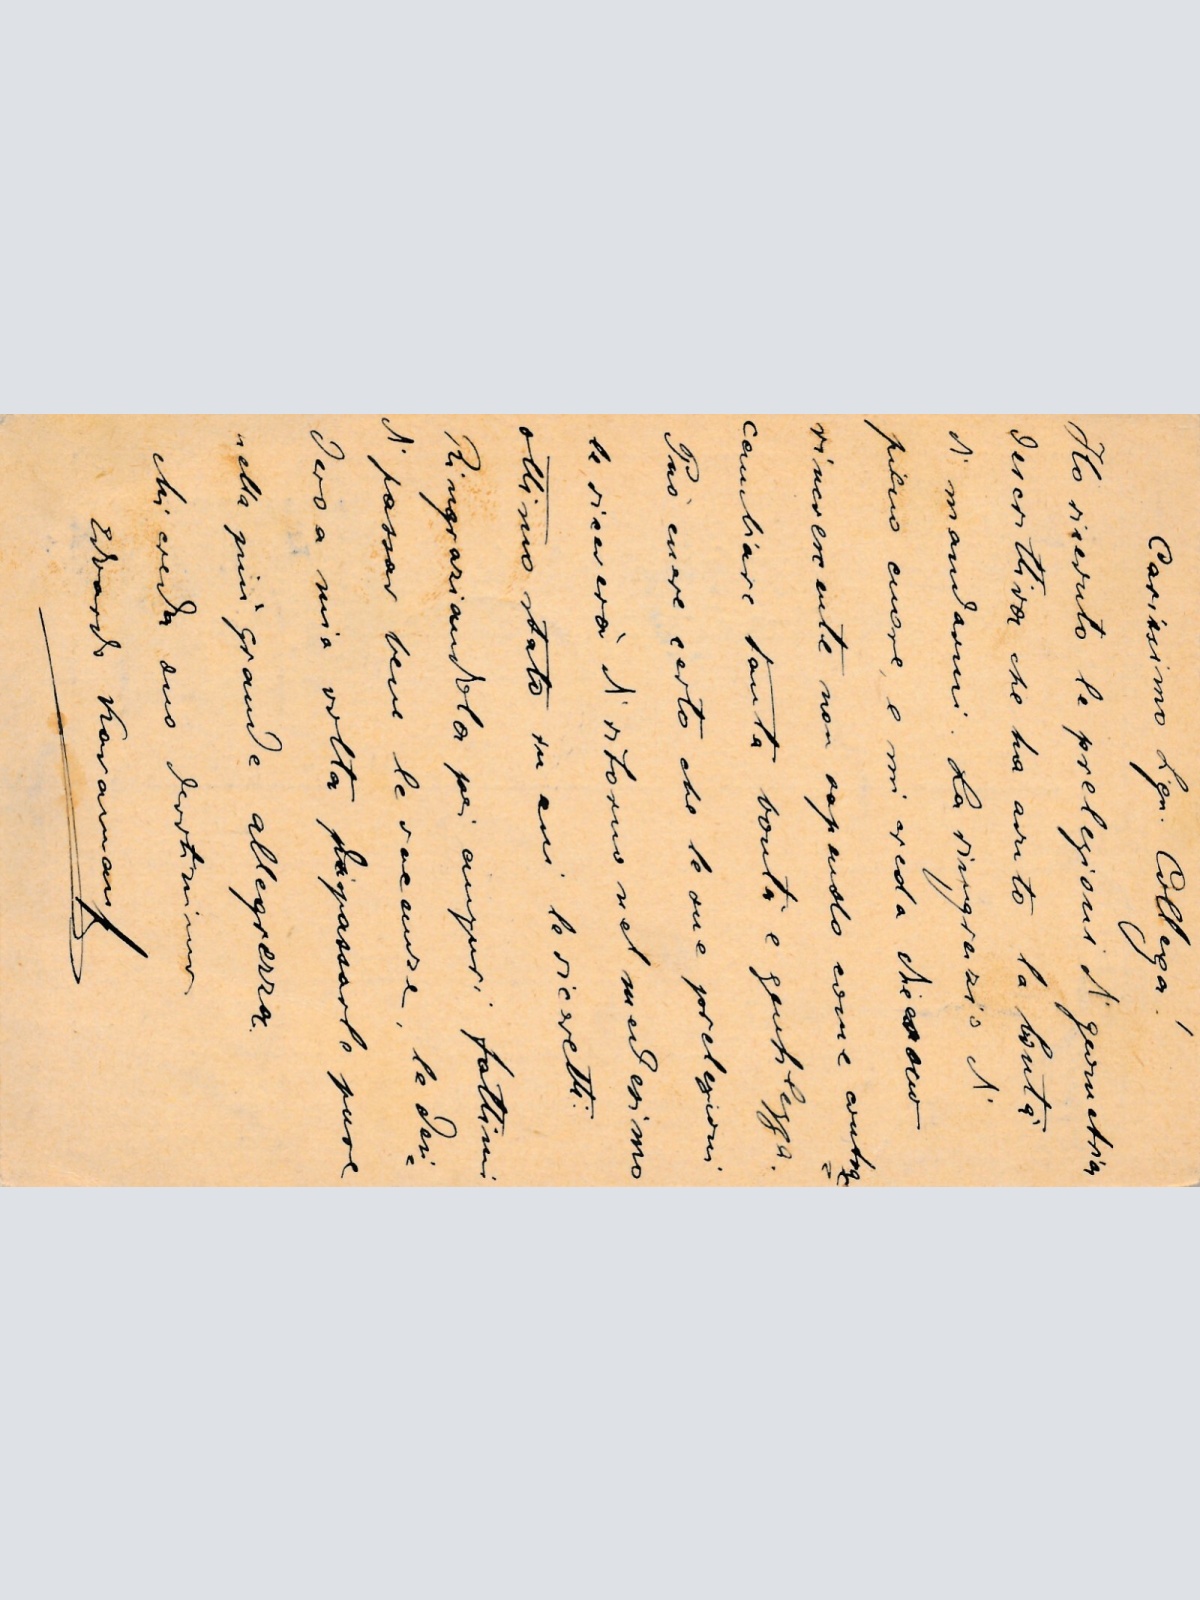 Carissimo Sgn. Collega!
Ho riceduto le prelezioni di geometria
descrittiva che ha avuto la bontà
di mandarmi. La ringrazio di
pieno cuore, e mi creda che sono
sinceremente non sapendo come contra=
cambiare tanta bontà e gentilezza.
Può essere certo che le sue prelezioni
le riceverà di ritorno nel medesimo
ottimo stato in cui le ricevetti.
Ringraziandola pei auguri fattimi
di passar bene le vacanze, le desi=
dero a mia volta passarle pure
nella più grande allegrezza.
Mi creda suo devotissimo
Edvardo Karaman